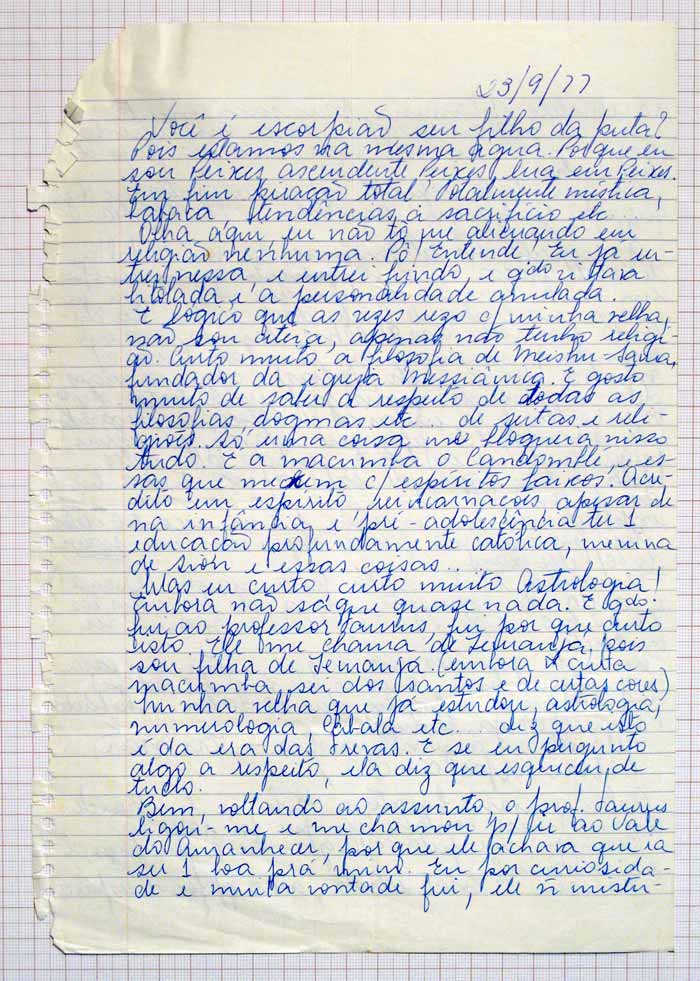 23/9/77
Você é escorpião seu filho da puta?
Pois estamos na mesma água. Porque eu
sou Peixes ascendente Peixes, lua em Peixes.
Em fim piração total. Totalmente mística,
babaca, tendências à sacrifício etc...
Olha aqui, eu não tô me alienando em
religião nenhuma. Pô! Entende. Eu já en-
trei nessa, e entrei fundo, e qdo vi tava
bitolada e a personalidade anulada.
É lógico que as vezes rezo c/ minha velha,
não sou ateia, apenas não tenho religi-
ão. Curto muito a filosofia de Meishu-Sama,
fundador da igreja Messiânica. E gosto
muito de saber a respeito de todas as
filosofias, dogmas etc.. de seitas e reli-
giões. Só uma coisa me bloqueia nisso
tudo. É a macumba o Candomblé, e es-
sas que mechem c/ espíritos baixos. Acre-
dito em espírito, reincarnações, apesar de
na infância e pré-adolescência ter 1
educação profundamente católica, menina
de Sion e essas coisas...
Mas eu curto curto muito Astrologia!
Embora não saque quase nada. E qdo.
fui ao professor Taurus, fui por que curto
isto. Ele me chama de Iemanjá, pois
sou filha de Iemanjá. (embora ñ curta
macumba sei dos santos e de certas cores)
Minha velha que já estudou, astrologia,
numerologia, Cabala etc... diz que isto
é da era das Trevas. E se eu pergunto
algo a respeito, ela diz que esqueceu de
tudo.
Bem, voltando ao assunto, o prof. Taurus
ligou-me e me chamou p/ ir ao Vale
do Amanhecer, por que ele achava que ia
ser 1 boa prá mim. Eu por curiosida-
de e muita vontade fui, ele ñ mistu-